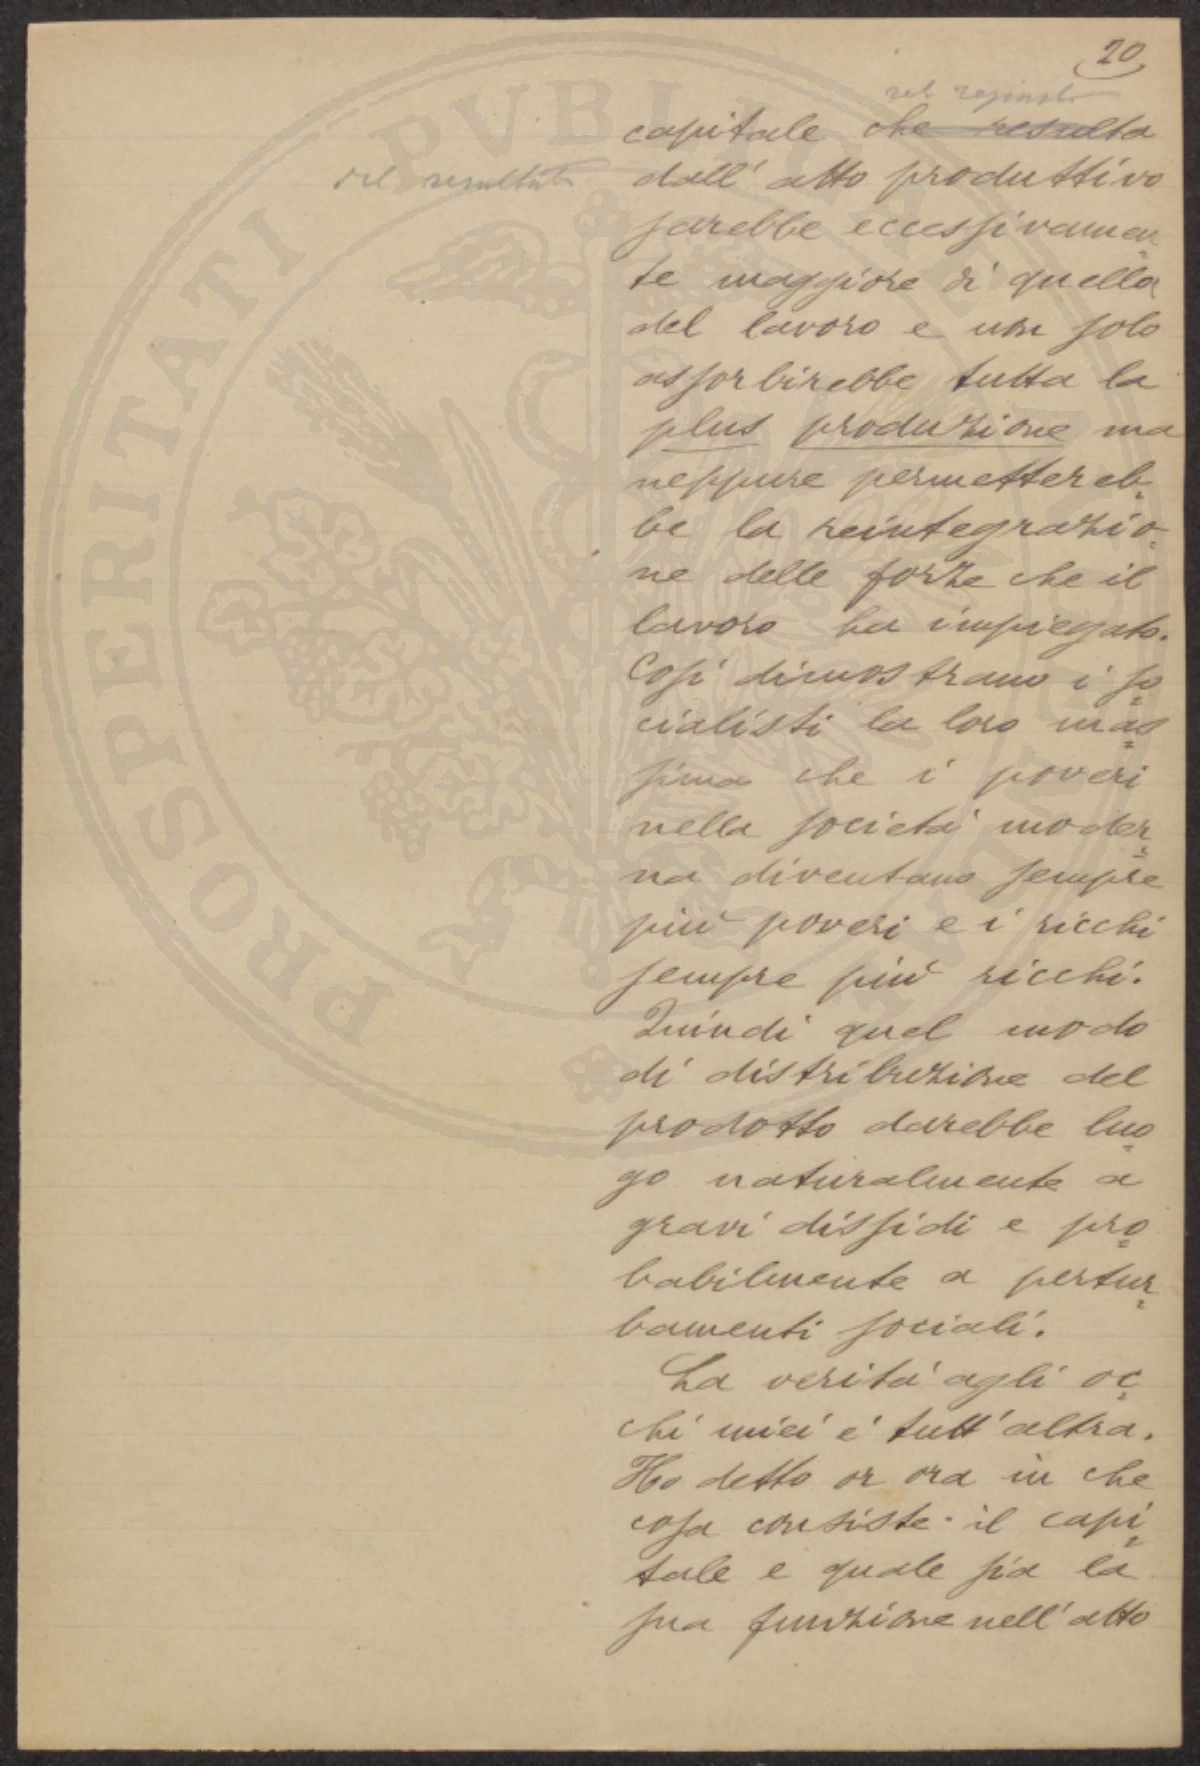 20
capitale che resulta
del resultato
dall' atto produttivo
sarebbe eccessivamen
te maggiore di quella
del lavoro e non solo
assorbirebbe tutta la
plus produzione ma
neppure permettereb
be la reintegrazio
ne delle forze che il
lavoro ha impiegato.
Così dimostrano i so
cialisti la loro mas
sima che i poveri
nella società moder
na diventano sempre
più poveri e i ricchi
sempre più ricchi.
Quindi quel modo
di distribuzione del
prodotto darebbe luo
go naturalmente a
gravi dissidi e pro
babilmente a pertur
bamenti sociali.
La verità agli oc
chi miei è tutt'altra.
Ho detto or ora in che
cosa consiste il capi
tale e quale sia la
sua funzione nell'atto
PROSPERITATI PVBLICAE